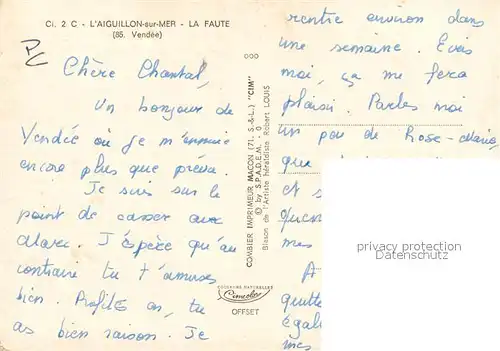 Ci. 2 C - L'AIGUILLON-sur-MER - LA FAUTE
(85. Vendée)
PC
Chère Chantal,
Un bonjour de
Vendée où je m'ennuie
encore plus que prévu.
Je suis sur le
point de casser avec
Marc. J'espère qu'au
contraire tu t'amuses
bien. Profites en, tu
as bien raison. Je
COMBIER IMPRIMEUR MACON (71. S.-&-L.) "CIM"
© by S.P.A.D.E.M. - 0
Blason de l'Artiste héraldiste Robert LOUIS
COULEURS NATURELLES
Cimcolor
OFFSET
rentre environ dans
une semaine. Ecris
moi, ça me fera
plaisir. Parles moi
un peu de Rose-Marie,
que
et s
mes
A
quitte
égal
mes
privacy protection
Datenschutz